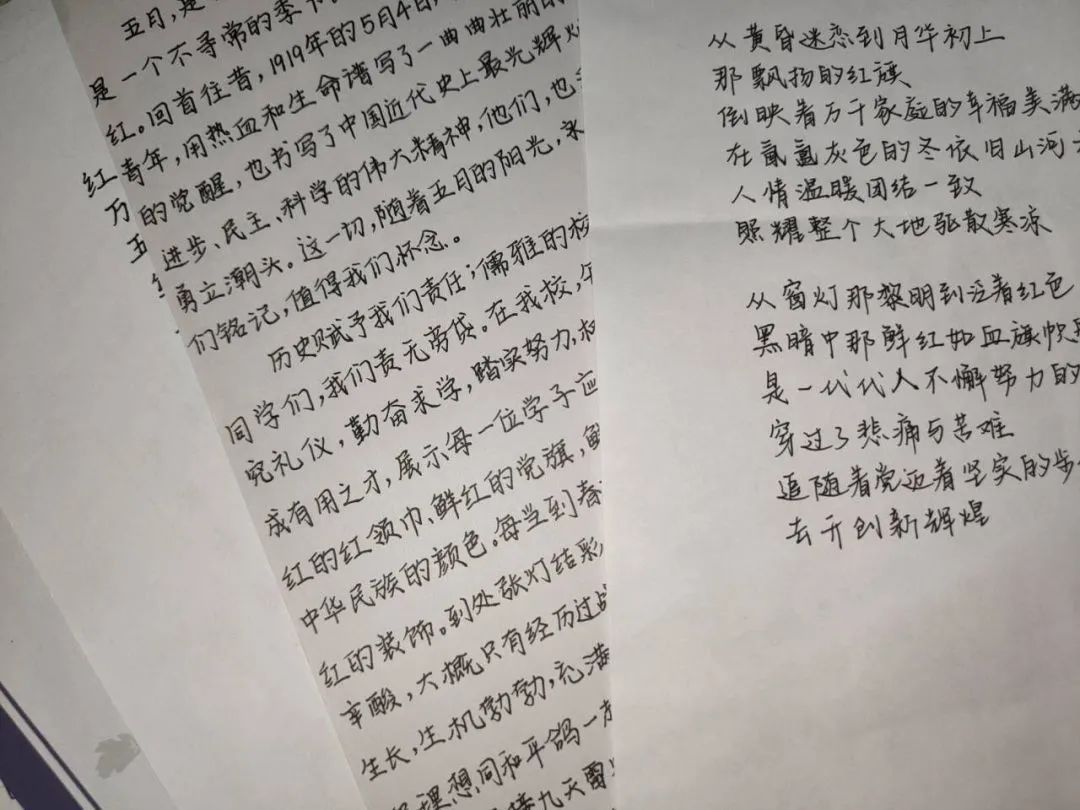 五月,是
是一个不寻常的季节
红。回首往昔,1919年的5月4日,
青年,用热血和生命谱写了一曲曲壮丽的
的觉醒,也书写了中国近代史上最光辉灿
进步、民主、科学的伟大精神,他们,也
勇立潮头。这一切,随着五月的阳光,永
们铭记,值得我们怀念。
历史赋予我们责任;儒雅的校
同学们,我们责无旁贷。在我校,年
究礼仪,勤奋求学,踏实努力,
成有用之才,展示每一位学子应
红的红领巾、鲜红的党旗,鲜
中华民族的颜色。每当到春
红的装饰。到处张灯结彩
辛酸,大概只有经历过战
生长,生机勃勃,充满
理想同和平鸽一
接九天雷
红
万
五
从黄昏迷恋到月华初上
那飘扬的红旗
倒映着万千家庭的幸福美满
在氤氲灰色的冬依旧山河
人情温暖团结一致
照耀整个大地驱散寒凉
从窗灯那黎明到泛着红色
黑暗中那鲜红如血旗帜
是一代代人不懈努力的
穿过了悲痛与苦难
追随着党迈着坚实的步
去开创新辉煌